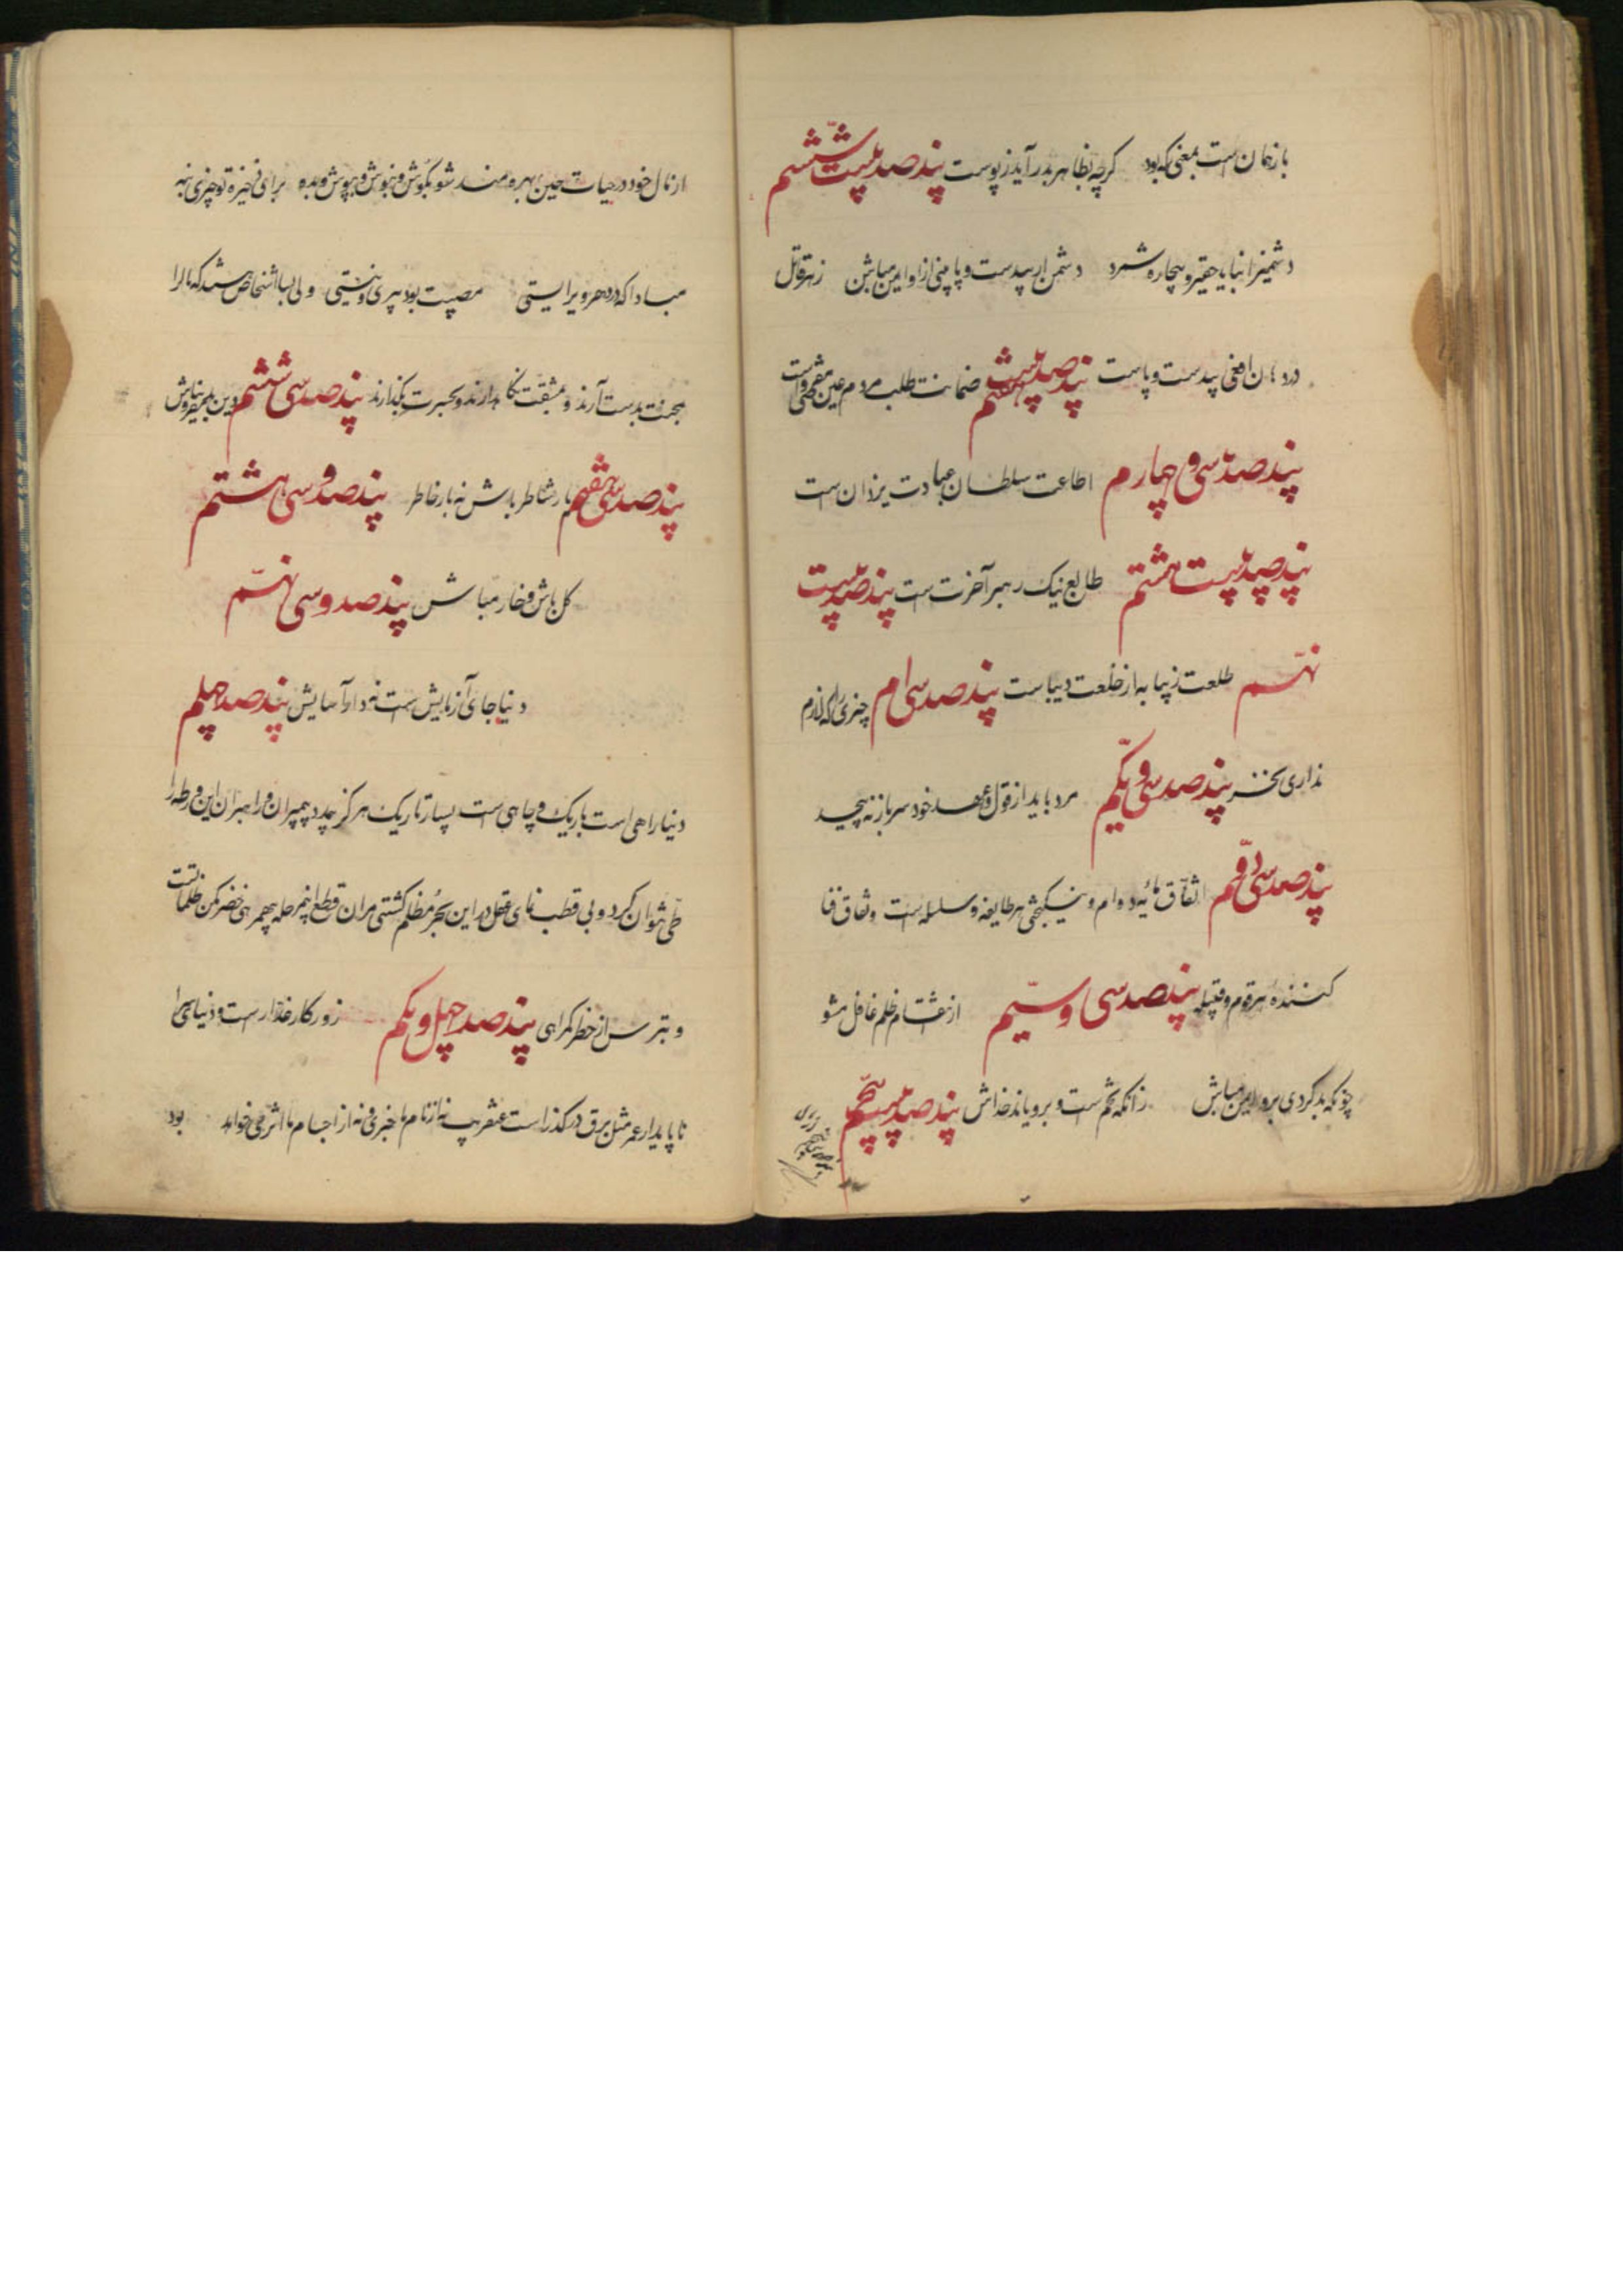 باز همان است بمعنی که بود گرچه بظاهر بدر آید ز پوست پند صد بیست ششم
دشمنرا نباید حقیر و بیچاره شمرد دشمن ار بیدست و پا بینی ازو ایمن مباش زهر قاتل
دارد آن افعی بیدست و پاست پند صد بیست هفتم ضمانت طلب مردم عین
پند صد سی و چهارم اطاعت سلطان عبادت یزدان است
پند صد بیست هشتم طالع نیک رهبر آخرت است پند صد بیست
نهم طلعت زیبا به از خلعت دیباست پند صد سی ام چیزی را که لازم
نداری مخر پند صد سی و یکم مرد باید از قول و عهد خود سر باز نه پیچد
پند صد سی دوم اتفاق مایه دوام و نیکبختی هر طایفه و سلسله است و نفاق فنا
کننده هر قوم و قبیله پند صد سی و سیم از انتقام ظلم غافل مشو
چونکه بد کردی برو ایمن مباش زانکه تخم است و برویاند خداش پند صد سی پنجم
از مال خود در حیات حین بهره مند شو بکوش و بنوش و بپوش و بده برای دخیره تو چیزی بنه
مبادا که در دهر دیر ایستی مصیبت بود پیری و نیستی ولی بسا اشخاص هستند که مال را
بمحنت بدست آرند و بمشقت نگاه دارند و بحسرت بگذارند پند صد سی ششم دین بدنیا مفروش
پند صد سی هفتم یار شاطر باش نه بار خاطر پند صد و سی هشتم
گل باش و خار مباش پند صد و سی نهم
دنیا جای آزمایش است نه دار آسایش پند صد چهلم
دنیا راهی است باریک و چاهی است بسیار تاریک هرگز بیمدد پیمبران و راهبران این ورطه را
طی نتوان کرد و بی قطب نمای عقل در این بحر مظلم کشتی مران قطع این مرحله بی همرهی خضر مکن ظلمات است
و بترس از خطر گمراهی پند صد چهل و یکم روزگار غدار است و دنیای
ناپایدار عمر مثل برق در گذر است عنقریب نه از نام ما خبری و نه از اجسام ما اثری خواهد بود